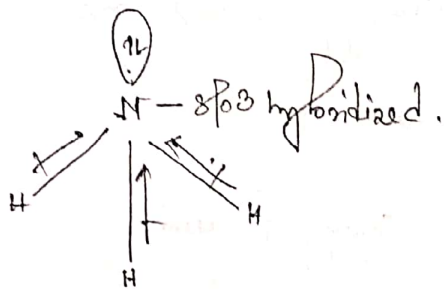 N - sp3 hybridized.
H
H
H